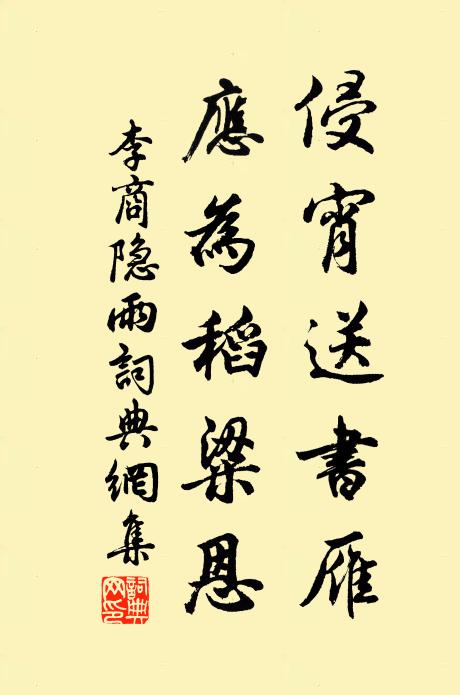 侵宵送書雁
應為稻粱恩
李商隐雨詞典網集
詞典网印